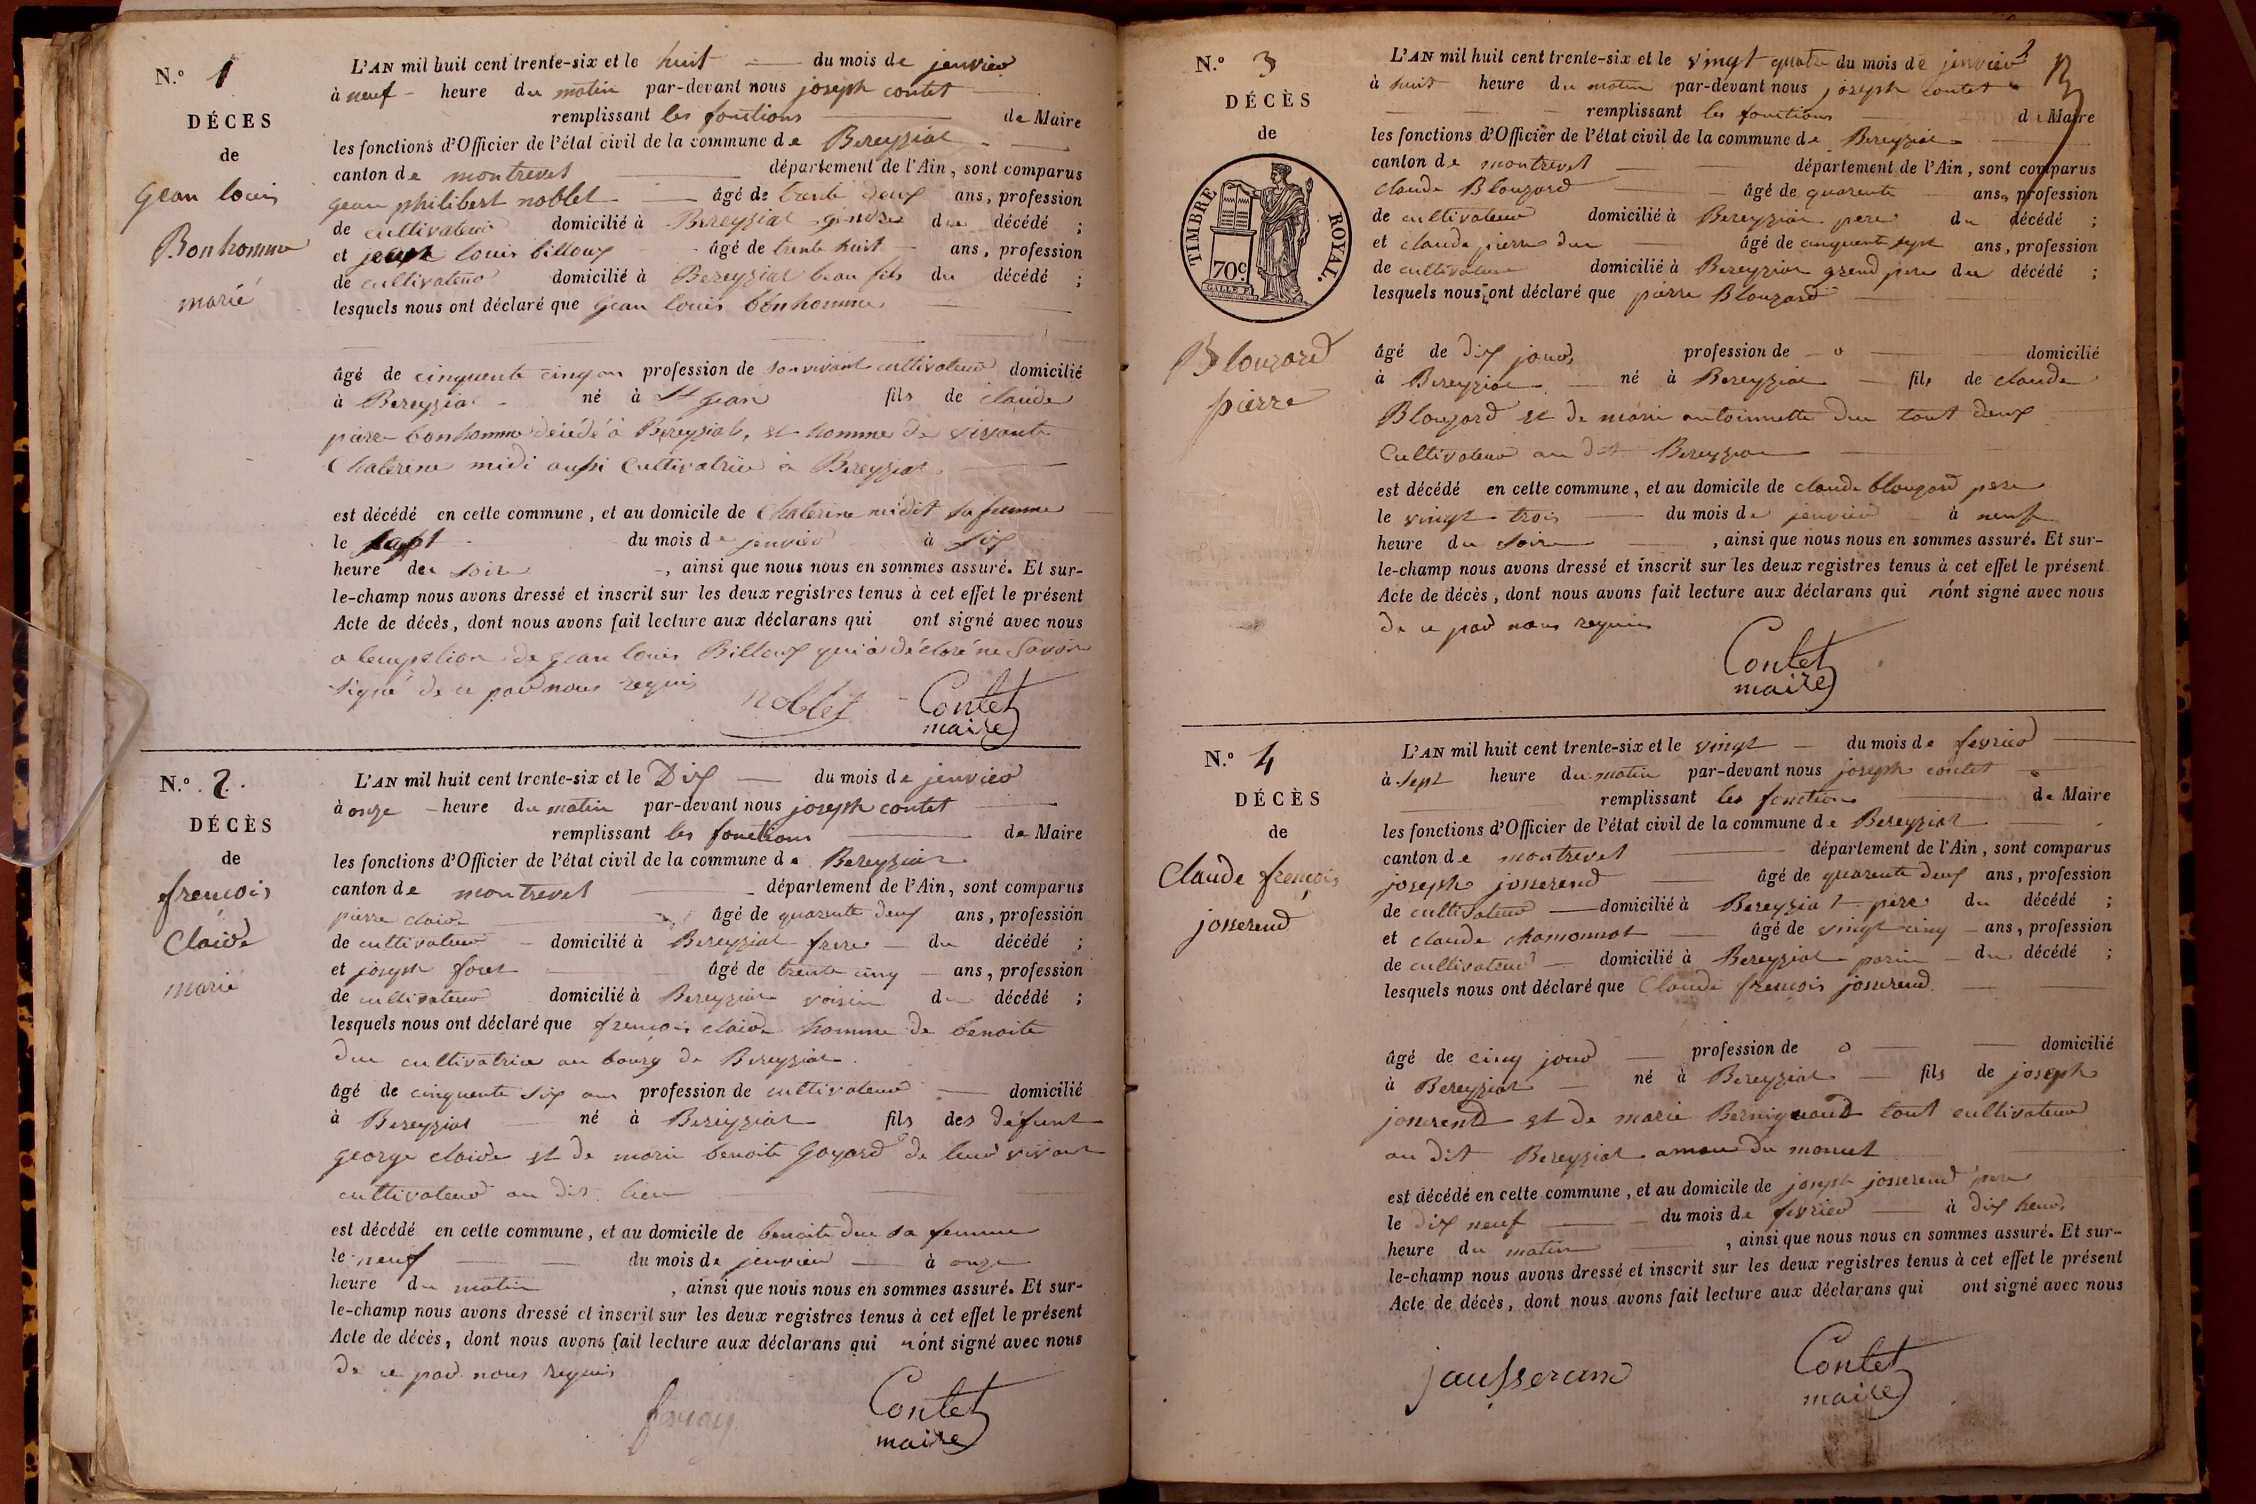 N.º 1
DÉCES
de
gean louis
Bonhomme
marié
L'AN mil huit cent trente-six et le huit du mois de jenvier
à neuf heure du matin par-devant nous joseph contet
remplissant les fonctions de Maire
les fonctions d'Officier de l'état civil de la commune de Bereyziat
canton de montrevel département de l'Ain, sont comparus
gean philibert noblet âgé de trente deux ans, profession
de cultivateur domicilié à Bereyziat gendre du décédé ;
et jean louis billoux âgé de trente huit ans, profession
de cultivateur domicilié à Bereyziat beau fils du décédé ;
lesquels nous ont déclaré que gean louis bonhomme
âgé de cinquente cinq an profession de son vivant cultivateur domicilié
à Bereyziat né à St jean fils de claude
pierre bonhomme décédé à Bereyziat, et homme de vivante
Chaterine midi aussi Cultivatrice à Bereyziat
est décédé en cette commune, et au domicile de Chaterine midit sa femme
le sept du mois de jenvier à six
heure du soir, ainsi que nous nous en sommes assuré. Et sur-
le-champ nous avons dressé et inscrit sur les deux registres tenus à cet effet le présent
Acte de décès, dont nous avons fait lecture aux déclarans qui ont signé avec nous
a lexeption de gean louis Billoux qui a déclaré ne savoir
signé de ce par nous requis
noblet Contet
maire
N.º 2.
DÉCÈS
de
frençois
Claide
marié
L'AN mil huit cent trente-six et le Dix du mois de jenvier
à onze heure du matin par-devant nous joseph contet
remplissant les fonctions de Maire
les fonctions d'Officier de l'état civil de la commune de Bereyziat
canton de montrevel département de l'Ain, sont comparus
pierre claide âgé de quarente deux ans, profession
de cultivateur domicilié à Bereyziat frere du décédé ;
et joseph foret âgé de trente cinq ans, profession
de cultivateur domicilié à Bereyziat voisin du décédé ;
lesquels nous ont déclaré que frençois claide homme de benoite
duc cultivatrice au bourg de Bereyziat
âgé de cinquente six ans profession de cultivateur domicilié
à Bereyziat né à Bereyziat fils des défunt
george claide et de marie benoite Goyard de leur vivant
cultivateur au dit lieu
est décédé en cette commune, et au domicile de benoite duc sa femme
le neuf du mois de jenvier à onze
heure du matin, ainsi que nous nous en sommes assuré. Et sur-
le-champ nous avons dressé et inscrit sur les deux registres tenus à cet effet le présent
Acte de décès, dont nous avons fait lecture aux déclarans qui n'ont signé avec nous
de ce par nous requis
Contet
maire
N.º 3
DÉCÈS
de
TIMBRE ROYAL.
70c
Blouzard
pierre
L'AN mil huit cent trente-six et le vingt quatre du mois de jenvier
à huit heure du matin par-devant nous joseph contet
remplissant les fonctions de Maire
les fonctions d'Officier de l'état civil de la commune de Bereyziat
canton de montrevel département de l'Ain, sont comparus
claude Blouzard âgé de quarente ans, profession
de cultivateur domicilié à Bereyziat pere du décédé ;
et claude pierre duc âgé de cinquente sept ans, profession
de cultivateur domicilié à Bereyziat grend pere du décédé ;
lesquels nous ont déclaré que pierre Blouzard
âgé de dix jours profession de o domicilié
à Bereyziat né à Bereyziat fils de claude
Blouzard et de marie antoinette duc tout deux
Cultivateur au dit Bereyziat
est décédé en cette commune, et au domicile de claude blouzard pere
le vingt trois du mois de jenvier à neuf
heure du soir, ainsi que nous nous en sommes assuré. Et sur-
le-champ nous avons dressé et inscrit sur les deux registres tenus à cet effet le présent
Acte de décès, dont nous avons fait lecture aux déclarans qui n'ont signé avec nous
de ce par nous requis
Contet
maire
N.º 4
DÉCÈS
de
Claude frençois
josserend
L'AN mil huit cent trente-six et le vingt du mois de fevrier
à sept heure du matin par-devant nous joseph contet
remplissant les fonctions de Maire
les fonctions d'Officier de l'état civil de la commune de Bereyziat
canton de montrevel département de l'Ain, sont comparus
joseph josserend âgé de quarente deux ans, profession
de cultivateur domicilié à Bereyziat pere du décédé ;
et claude chamonnot âgé de vingt cinq ans, profession
de cultivateur domicilié à Bereyziat parin du décédé ;
lesquels nous ont déclaré que Claude frençois josserend
âgé de cinq jour profession de o domicilié
à Bereyziat né à Bereyziat fils de joseph
josserend et de marie Berniquaud tout cultivateur
au dit Bereyziat du moncet
est décédé en cette commune, et au domicile de joseph josserend pere
le dix neuf du mois de fevrier à dix heurs
heure du matin, ainsi que nous nous en sommes assuré. Et sur-
le-champ nous avons dressé et inscrit sur les deux registres tenus à cet effet le présent
Acte de décès, dont nous avons fait lecture aux déclarans qui ont signé avec nous
jausseran Contet
maire